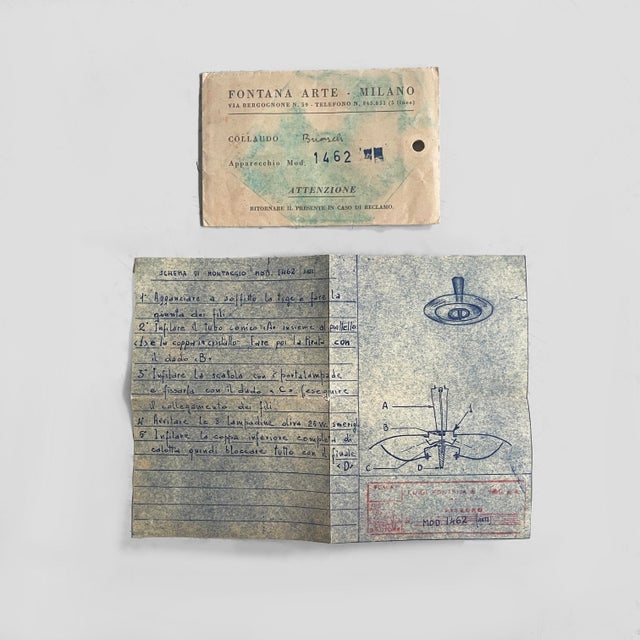 FONTANA ARTE - MILANO
VIA BERGOGNONE N. 59 - TELEFONO N.
COLLAUDO
Apparecchio Mod. 1462
ATTENZIONE
RITORNARE IL PRESENTE IN CASO DI RECLAMO.
SCHEMA DI MONTAGGIO MOD. 1462
1° Agganciare a soffitto la tige e fare la
giunta dei fili
2° Infilare il tubo conico «A» insieme al piattello
e la coppa in cristallo fare poi la tirata con
il dado «B»
3° Infilare la scatola con 8 portalampade
e fissarla con il dado «C» (eseguire
il collegamento dei fili
4° Avvitare le 8 lampadine oliva 25 W. smerig.
5° Infilare la coppa inferiore completa di
calotta quindi bloccare tutto con il finale
«D»
A
B
C
D
MOD. 1462